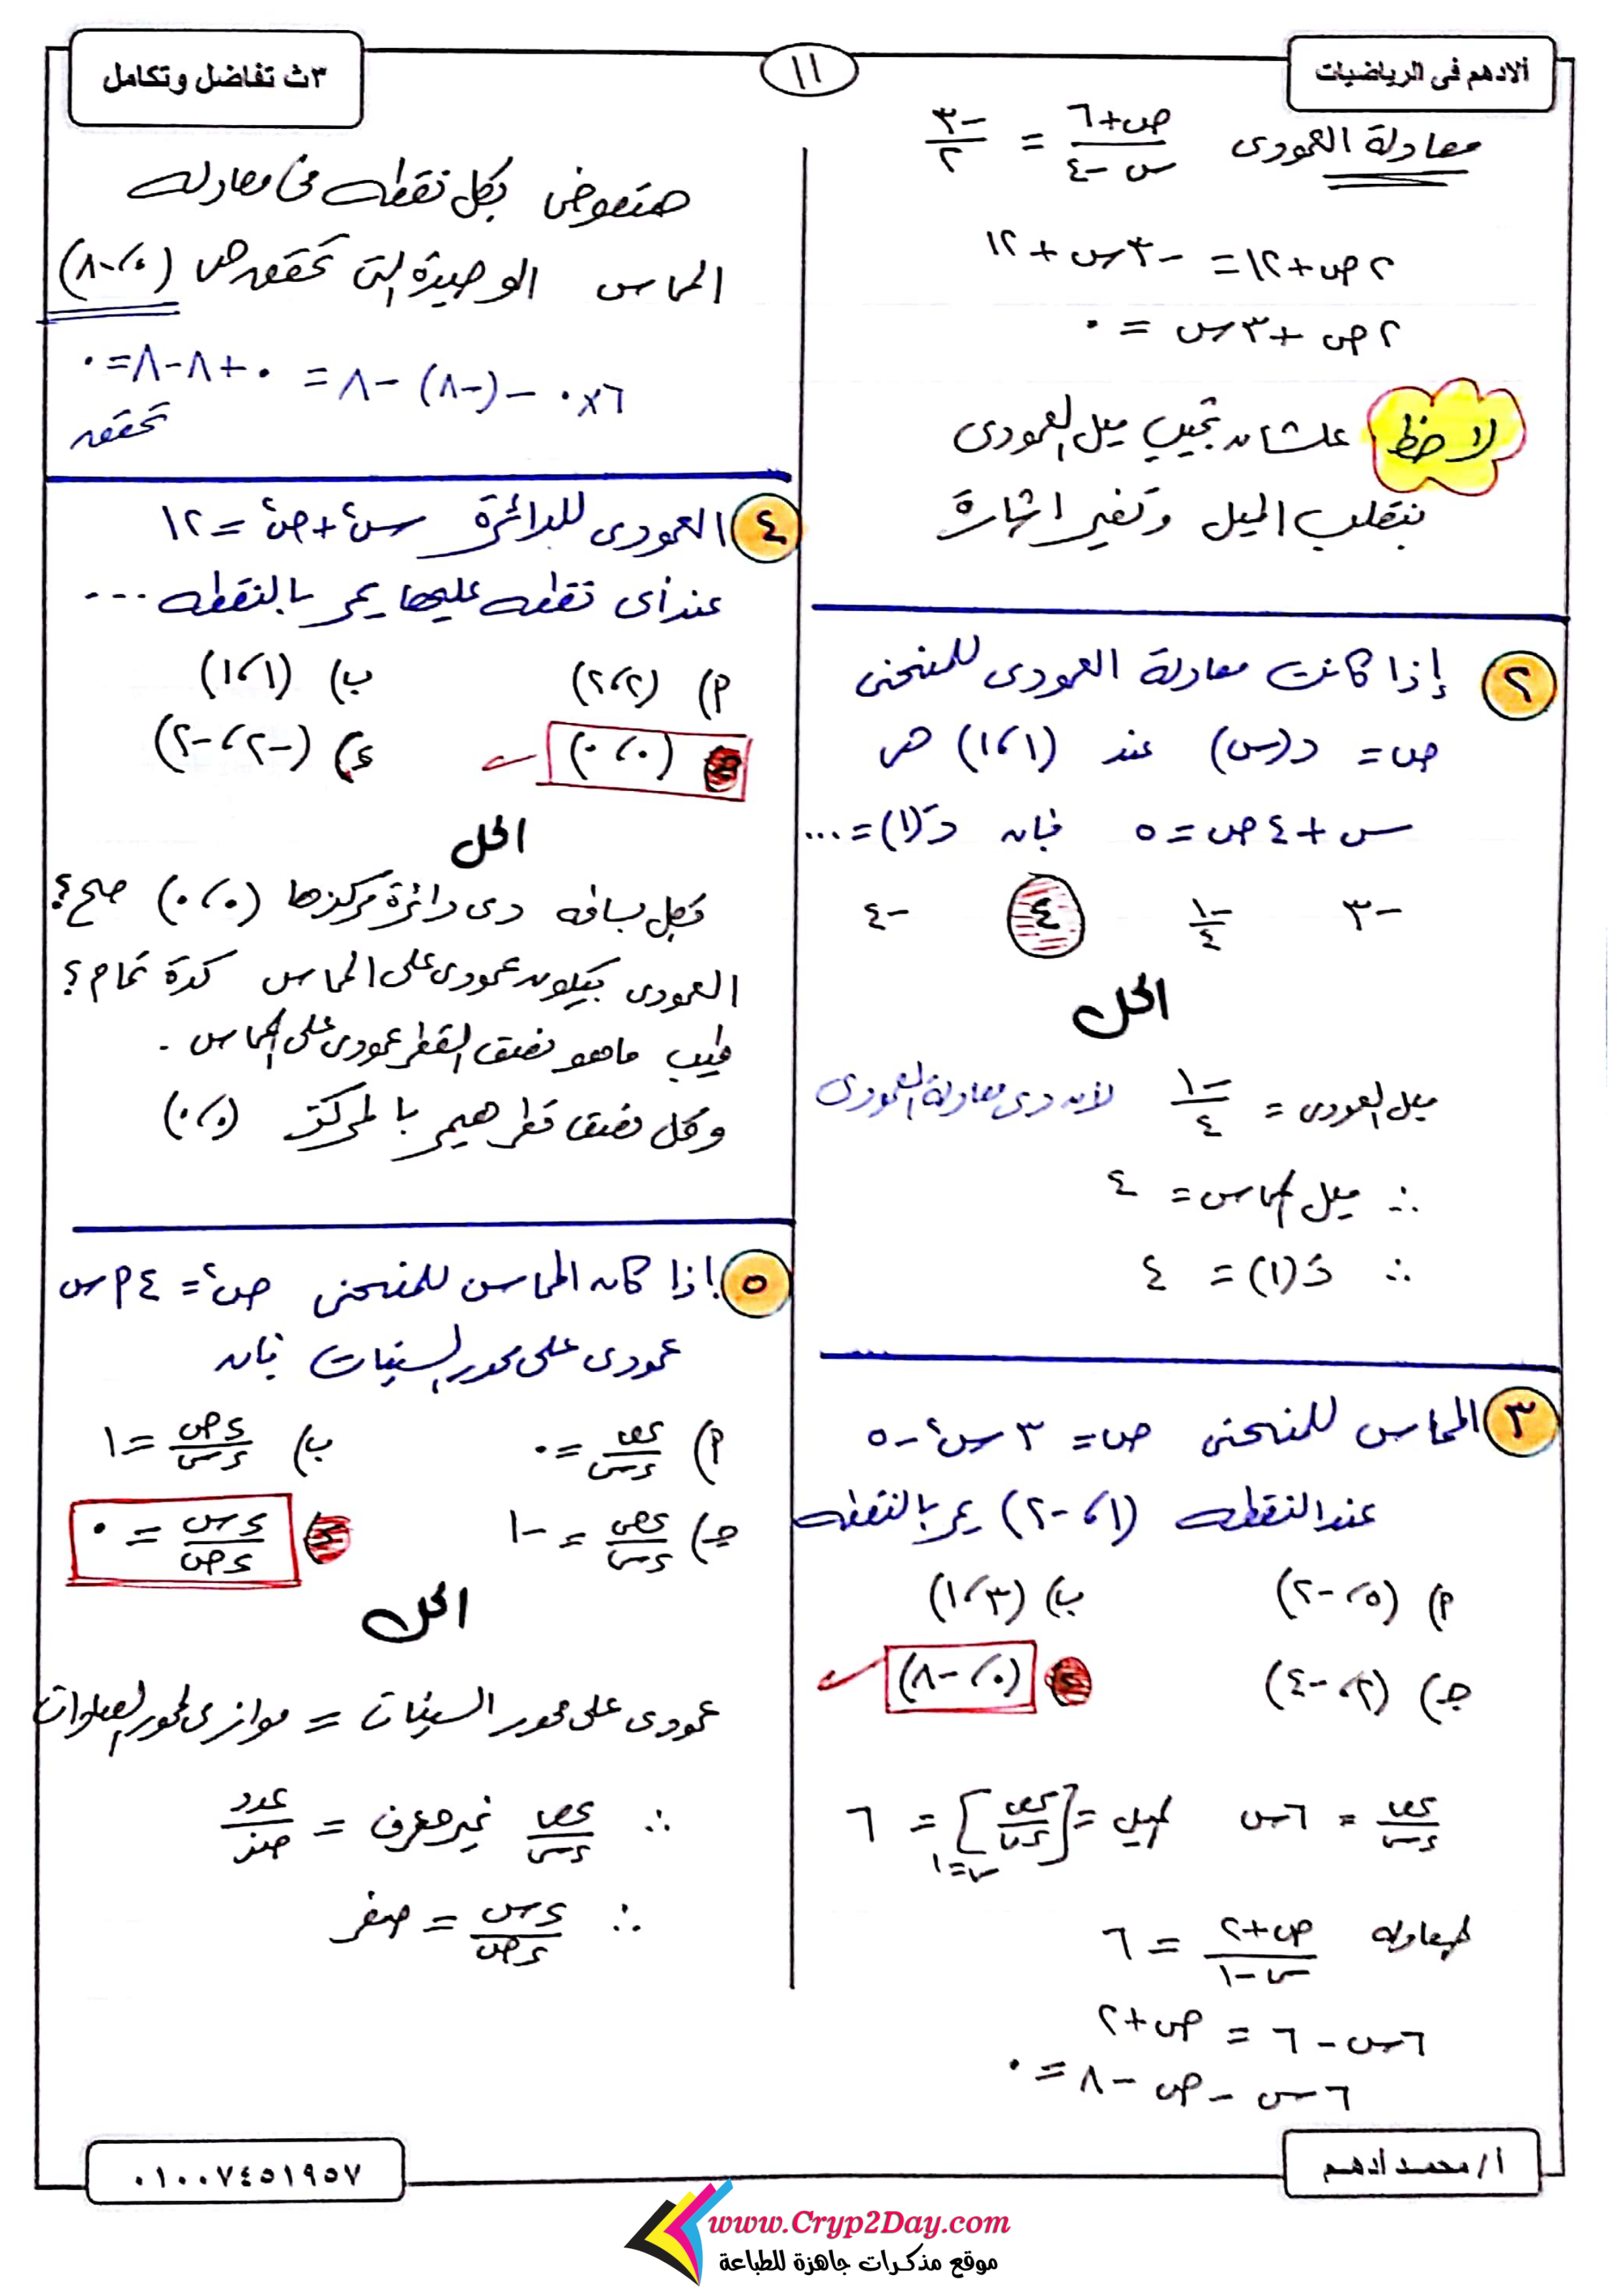 ألادهم فى الرياضيات
١١
٣ث تفاضل وتكامل
معادلة العمودى (ص+٦)/(س-٤) = -٣/٢
٢ص+١٢ = -٣س+١٢
٢ص+٣س = ٠
لاحظ علشان تجيب ميل العمودى
بتقلب الميل وتغير اشارة
٢ إذا كانت معادلة العمودى للمنحنى
ص = د(س) عند (١،١) هى
س+٤ص=٥ فإن دَ(١)=...
-٣ -١/٤ ٤ -٤
الحل
ميل العمودى = -١/٤ لأن دى معادلة العمودى
∴ ميل المماس = ٤
∴ دَ(١) = ٤
٣ المماس للمنحنى ص = ٣س٢-٥
عند النقطه (١،-٢) يمر بالنقطه
أ) (٥،-٢) ب) (٣،١)
جـ) (٢،-٤) د) (٠،-٨)
ءص/ءس = ٦س الميل = [ءص/ءس]س=١ = ٦
المعادله (ص+٢)/(س-١) = ٦
٦س-٦ = ص+٢
٦س-ص-٨=٠
هنعوض بكل نقطه فى معادله
المماس الوحيدة التى تحققه هى (٠،-٨)
٦×٠-(-٨)-٨ = ٠+٨-٨=٠
تحققه
٤ العمودى للدائرة س٢+ص٢=١٢
عند أى نقطه عليها يمر بالنقطه ...
أ) (٢،٢) ب) (١،١)
جـ) (٠،٠) د) (-٢،-٢)
الحل
بكل بساطه دى دائرة مركزها (٠،٠) صح؟
العمودى بيكون عمودى على المماس كدة تمام؟
طيب ماهو نصف القطر عمودى على المماس.
وكل نصف قطر هيمر بالمركز (٠،٠)
٥ إذا كان المماس للمنحنى ص٢=٤أس
عمودى على محور السينات فإن
أ) ءص/ءس=٠ ب) ءص/ءس=١
جـ) ءص/ءس=-١ د) ءس/ءص=٠
الحل
عمودى على محور السينات = موازى لمحور الصادات
∴ ءص/ءس غير معرف = عدد/صفر
∴ ءس/ءص = صفر
أ/ محمد أدهم
٠١٠٠٧٤٥١٩٥٧
www.Cryp2Day.com
موقع مذكرات جاهزة للطباعة